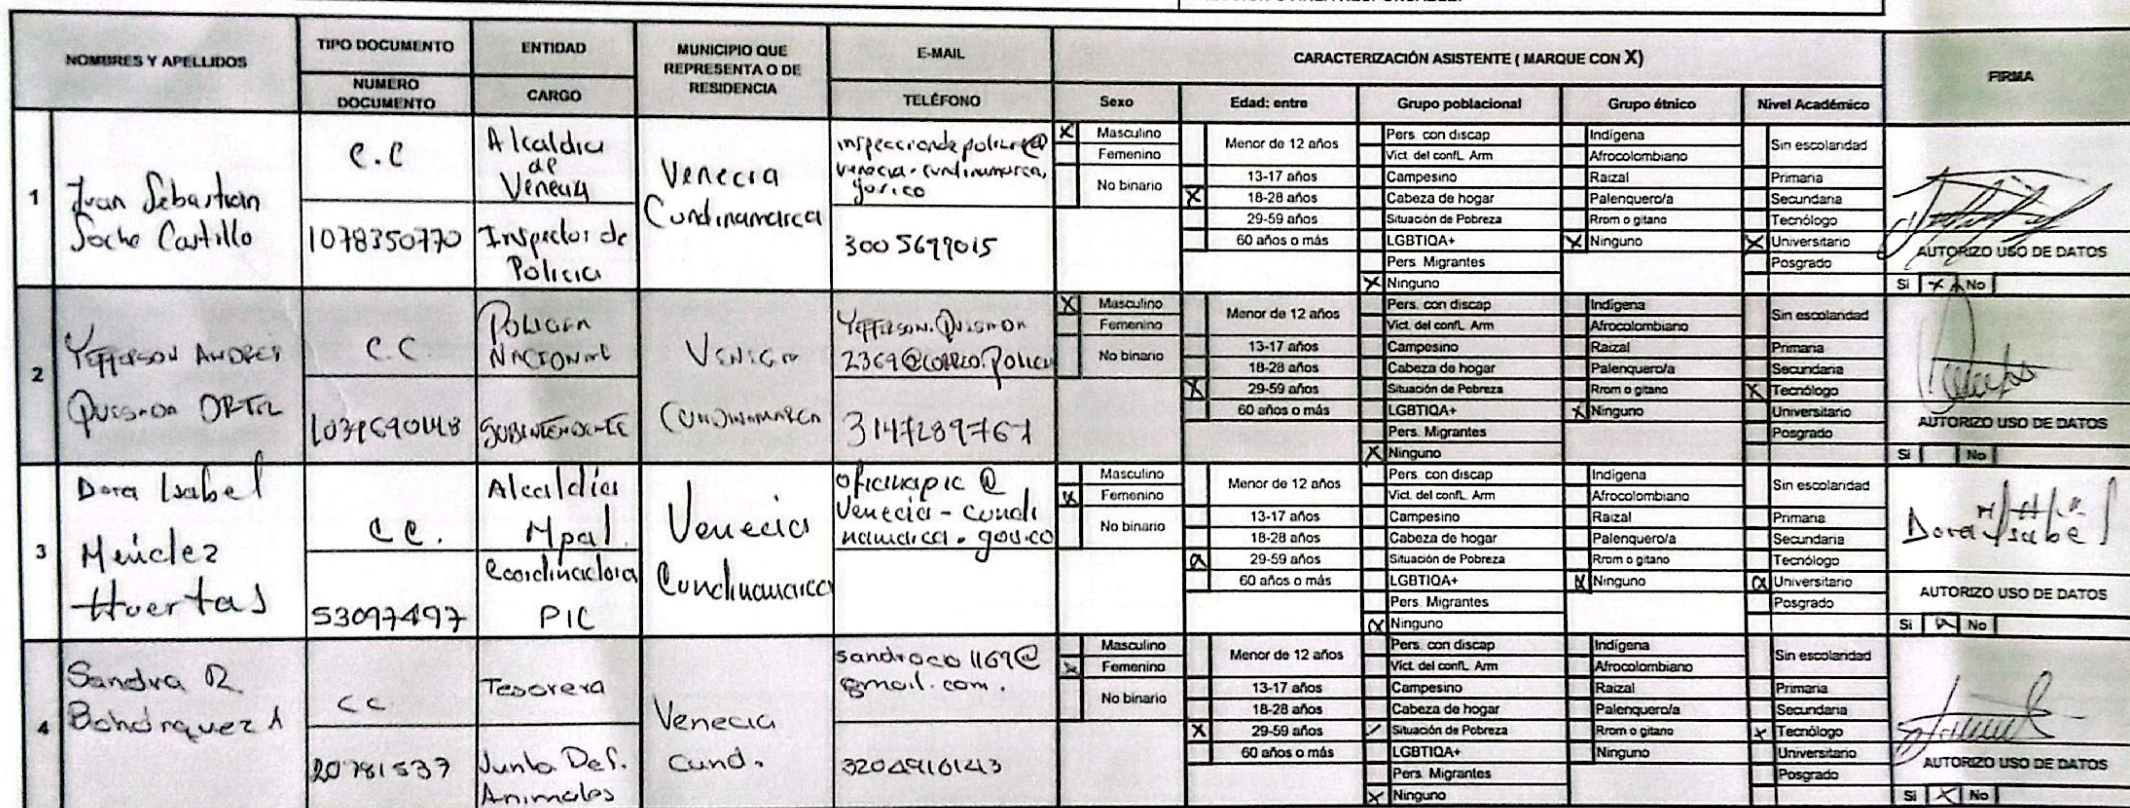 NOMBRES Y APELLIDOS
TIPO DOCUMENTO
NUMERO DOCUMENTO
ENTIDAD
CARGO
MUNICIPIO QUE REPRESENTA O DE RESIDENCIA
E-MAIL
TELÉFONO
CARACTERIZACIÓN ASISTENTE ( MARQUE CON X)
Sexo
Edad: entre
Grupo poblacional
Grupo étnico
Nivel Académico
FIRMA
1
Juan Sebastian
Socho Castillo
C.C
1078350770
Alcaldia
de
Venecia
Inspector de
Policia
Venecia
Cundinamarca
inspecciondepolicia@
venecia-cundinamarca.
gov.co
3005699015
X Masculino
Femenino
No binario
Menor de 12 años
13-17 años
X 18-28 años
29-59 años
60 años o más
Pers. con discap
Vict. del confl. Arm
Campesino
Cabeza de hogar
Situación de Pobreza
LGBTIQA+
Pers. Migrantes
X Ninguno
Indígena
Afrocolombiano
Raizal
Palenquero/a
Rrom o gitano
X Ninguno
Sin escolaridad
Primaria
Secundaria
Tecnólogo
X Universitario
Posgrado
AUTORIZO USO DE DATOS
Si X No
2
YEFFERSON ANDRES
QUESADA ORTIZ
C.C
POLICIA
NACIONAL
SUBINTENDENTE
VENECIA
CUNDINAMARCA
YEFFERSON.QUESADA
2369@CORREO.POLICIA
3147289767
X Masculino
Femenino
No binario
Menor de 12 años
13-17 años
18-28 años
X 29-59 años
60 años o más
Pers. con discap
Vict. del confl. Arm
Campesino
Cabeza de hogar
Situación de Pobreza
LGBTIQA+
Pers. Migrantes
X Ninguno
Indígena
Afrocolombiano
Raizal
Palenquero/a
Rrom o gitano
X Ninguno
Sin escolaridad
Primaria
Secundaria
X Tecnólogo
Universitario
Posgrado
AUTORIZO USO DE DATOS
Si No
3
Dora Isabel
Méndez
Huertas
CC.
53097497
Alcaldía
Mpal.
Coordinadora
PIC
Venecia
Cundinamarca
oficinapic@
venecia-cundi
namarca.gov.co
Masculino
X Femenino
No binario
Menor de 12 años
13-17 años
18-28 años
X 29-59 años
60 años o más
Pers. con discap
Vict. del confl. Arm
Campesino
Cabeza de hogar
Situación de Pobreza
LGBTIQA+
Pers. Migrantes
X Ninguno
Indígena
Afrocolombiano
Raizal
Palenquero/a
Rrom o gitano
X Ninguno
Sin escolaridad
Primaria
Secundaria
Tecnólogo
X Universitario
Posgrado
Dora Isabel
AUTORIZO USO DE DATOS
Si X No
4
Sandra R
Bohórquez A
CC
20781537
Tesorera
Junta Def.
Animales
Venecia
Cund.
sandraco1169@
gmail.com.
Masculino
X Femenino
No binario
Menor de 12 años
13-17 años
18-28 años
X 29-59 años
60 años o más
Pers. con discap
Vict. del confl. Arm
Campesino
Cabeza de hogar
Situación de Pobreza
LGBTIQA+
Pers. Migrantes
X Ninguno
Indígena
Afrocolombiano
Raizal
Palenquero/a
Rrom o gitano
Ninguno
Sin escolaridad
Primaria
Secundaria
X Tecnólogo
Universitario
Posgrado
AUTORIZO USO DE DATOS
Si X No